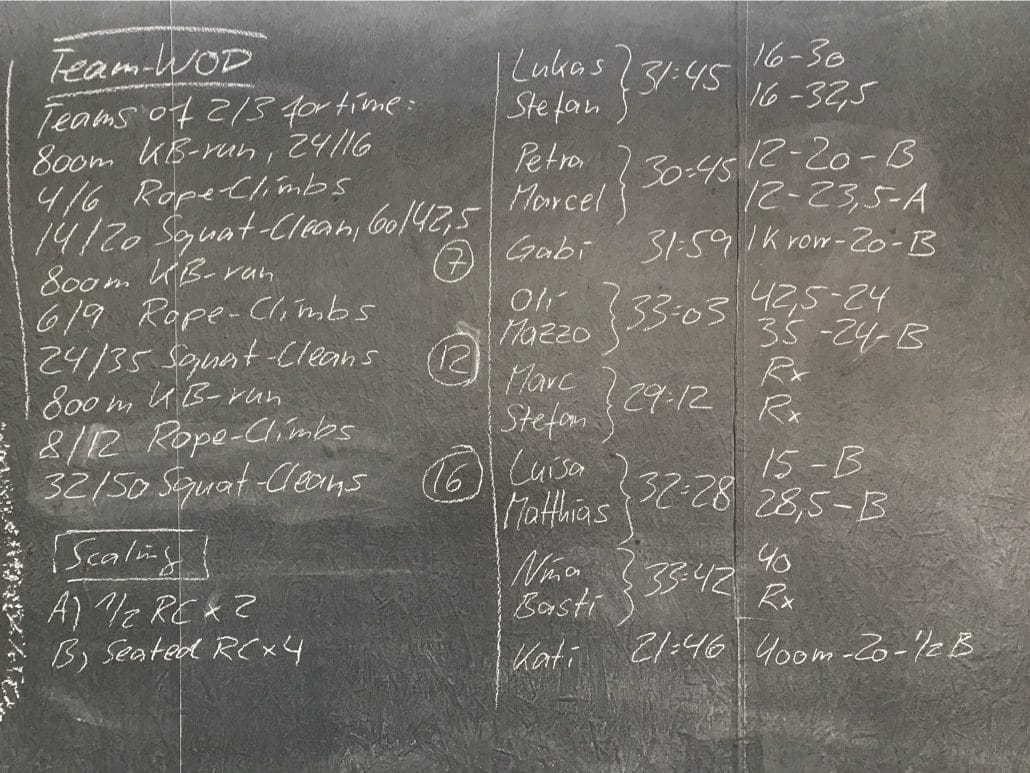 Team-WOD
Teams of 2/3 for time:
800m KB-run, 24/16
4/6 Rope-Climbs
14/20 Squat-Clean, 60/42,5
7
800m KB-run
6/9 Rope-Climbs
24/35 Squat-Cleans
12
800m KB-run
8/12 Rope-Climbs
32/50 Squat-Cleans
16
Scaling
A) 1/2 RC x 2
B) Seated RC x 4
Lukas } 31:45 16-30
Stefan 16-32,5
Petra } 30:45 12-20-B
Marcel 12-23,5-A
Gabi 31:59 1K row-20-B
Oli } 33:03 42,5-24
Mazzo 35-24-B
Marc } 29:12 Rx
Stefan Rx
Luisa } 32:28 15-B
Matthias 28,5-B
Nina } 33:42 40
Basti Rx
Kati 21:46 400m-20-1/2B